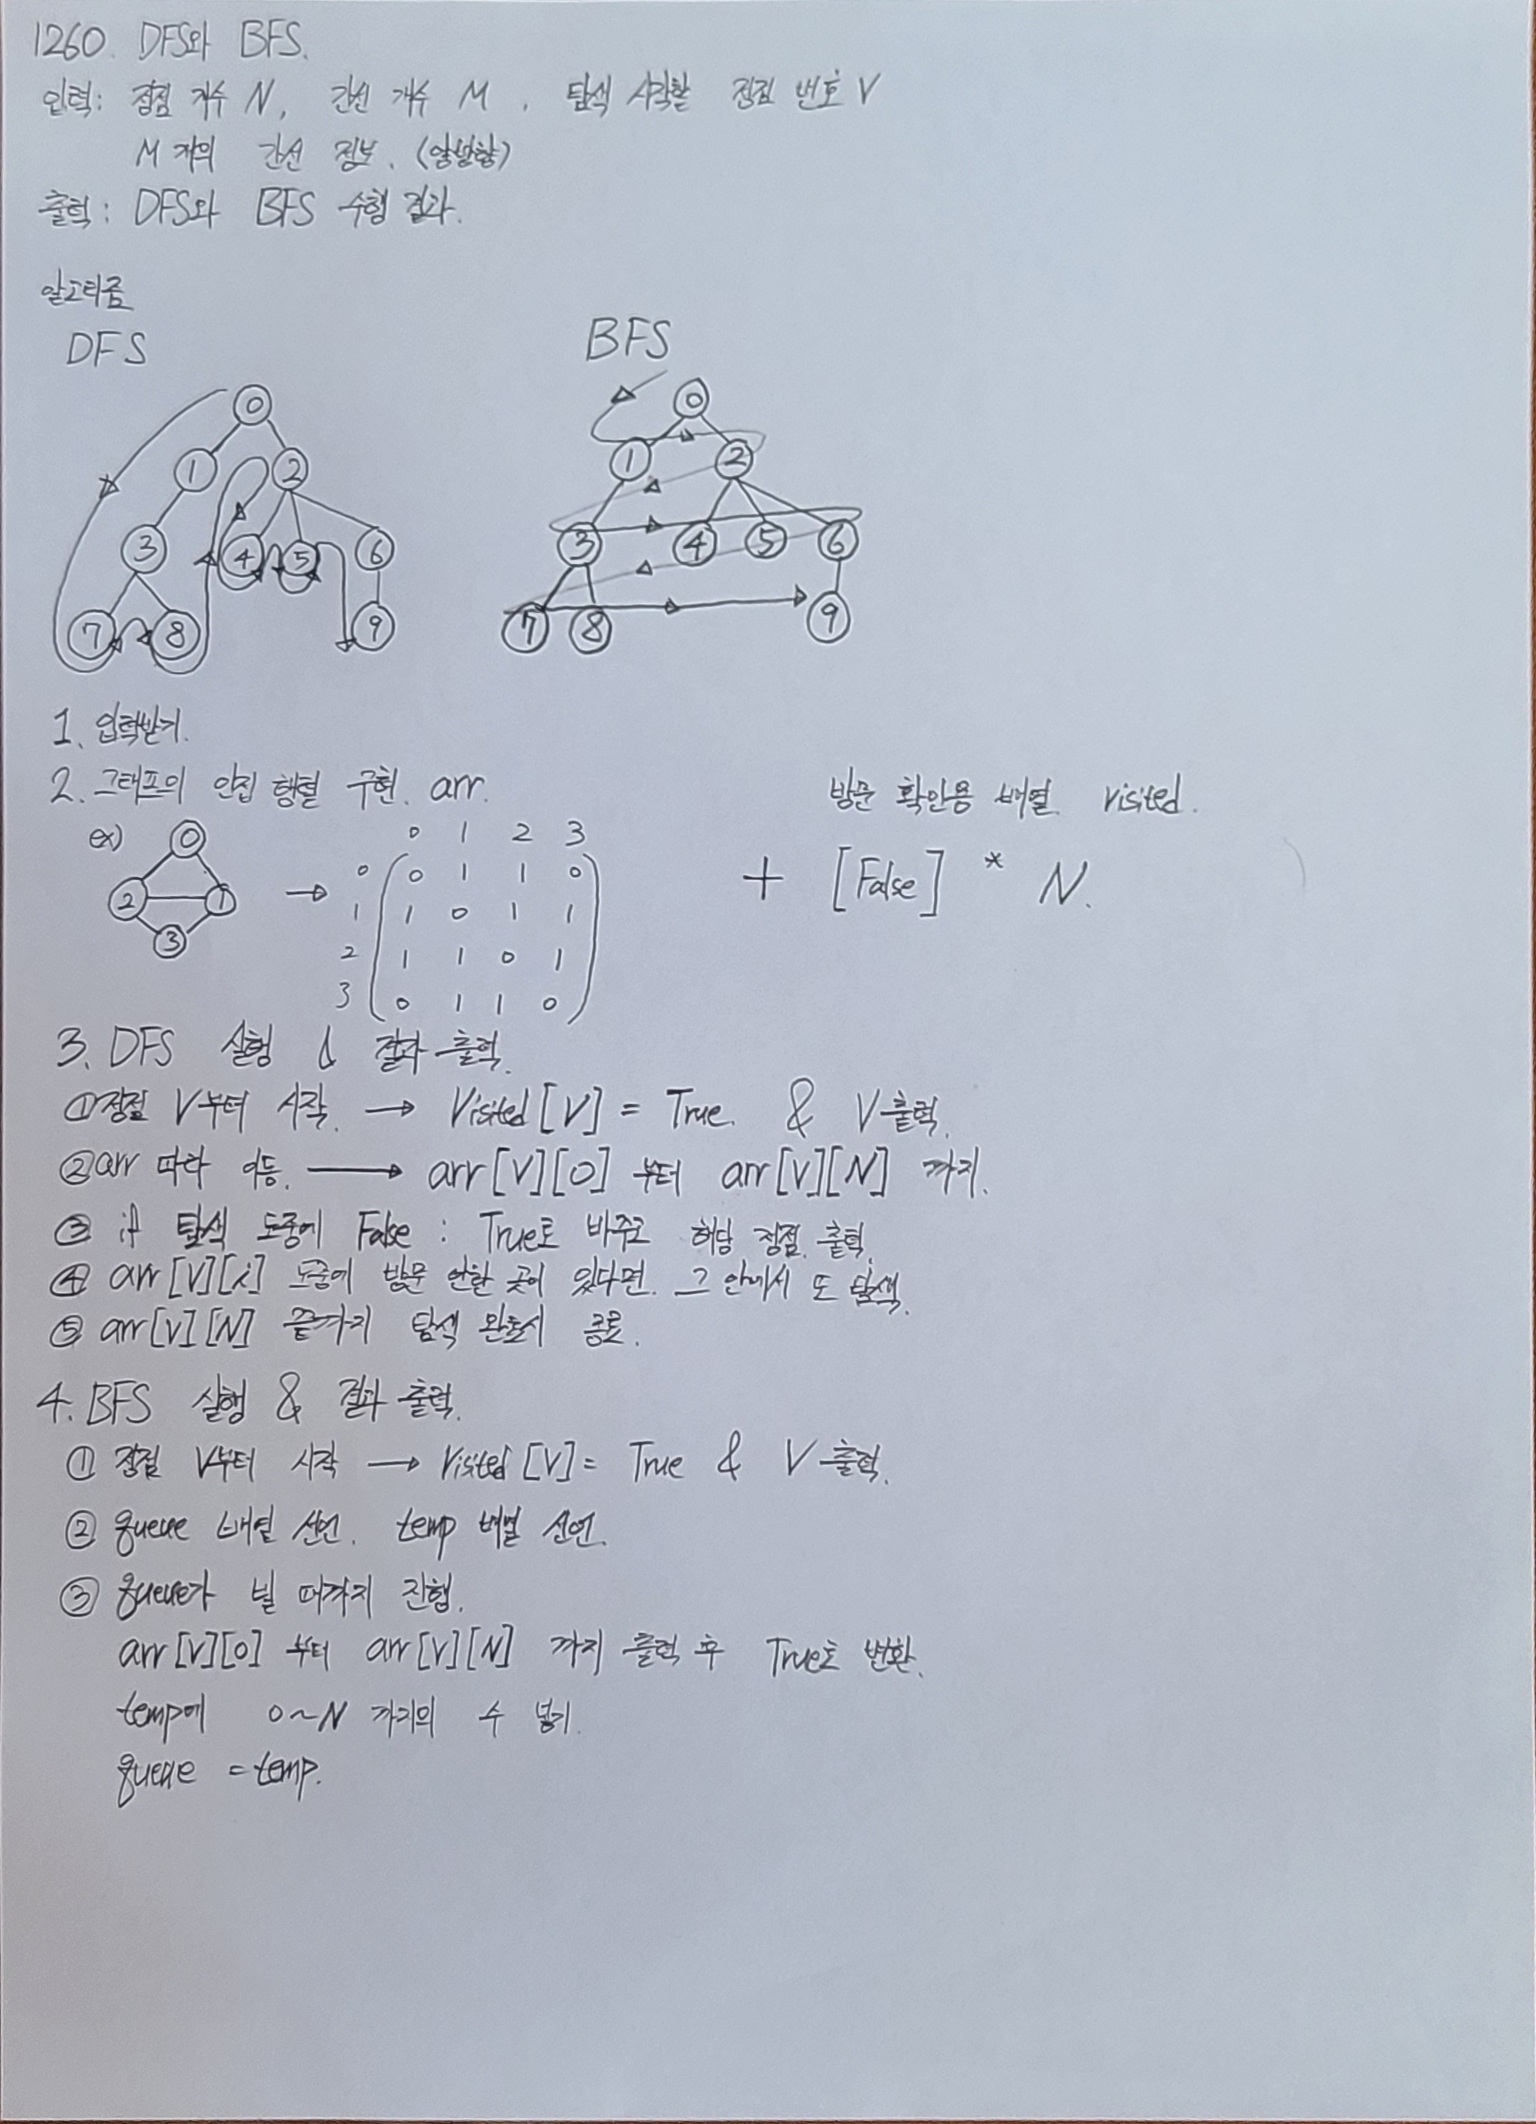 1260. DFS와 BFS.
입력: 정점 개수 N, 간선 개수 M, 탐색 시작할 정점 번호 V
M개의 간선 정보. (양방향)
출력: DFS와 BFS 수행 결과.
알고리즘
DFS
BFS
0
1 2
3 4 5 6
7 8 9
0
1 2
3 4 5 6
7 8 9
1. 입력받기.
2. 그래프의 인접 행렬 구현. arr.
방문 확인용 배열 visited.
ex)
0
2 1
3
→
0 1 2 3
0 0 1 1 0
1 1 0 1 1
2 1 1 0 1
3 0 1 1 0
+ [False] * N.
3. DFS 실행 & 결과 출력.
① 정점 V부터 시작. → Visited[V] = True. & V 출력.
② arr 따라 이동. → arr[V][0] 부터 arr[V][N] 까지.
③ if 탐색 도중에 False : True로 바꾸고 해당 정점 출력.
④ arr[V][i] 도중에 방문 안한 곳이 있다면. 그 안에서 또 탐색.
⑤ arr[V][N] 끝까지 탐색 완료시 종료.
4. BFS 실행 & 결과 출력.
① 정점 V부터 시작 → Visited[V] = True & V 출력.
② queue 배열 선언. temp 배열 선언.
③ queue가 빌 때까지 진행.
arr[V][0] 부터 arr[V][N] 까지 출력 후 True로 변환.
temp에 0~N 까지의 수 넣기.
queue = temp.